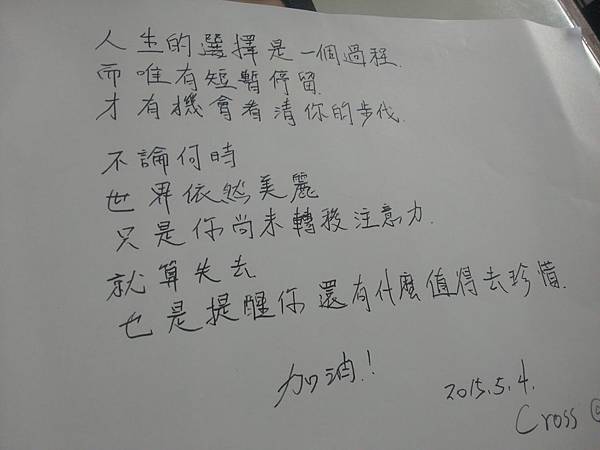 人生的選擇是一個過程.
而唯有短暫停留.
才有機會看清你的步伐.
不論何時
世界依然美麗
只是你尚未轉移注意力.
就算失去
也是提醒你還有什麼值得去珍惜.
加油!
2015.5.4.
Cross